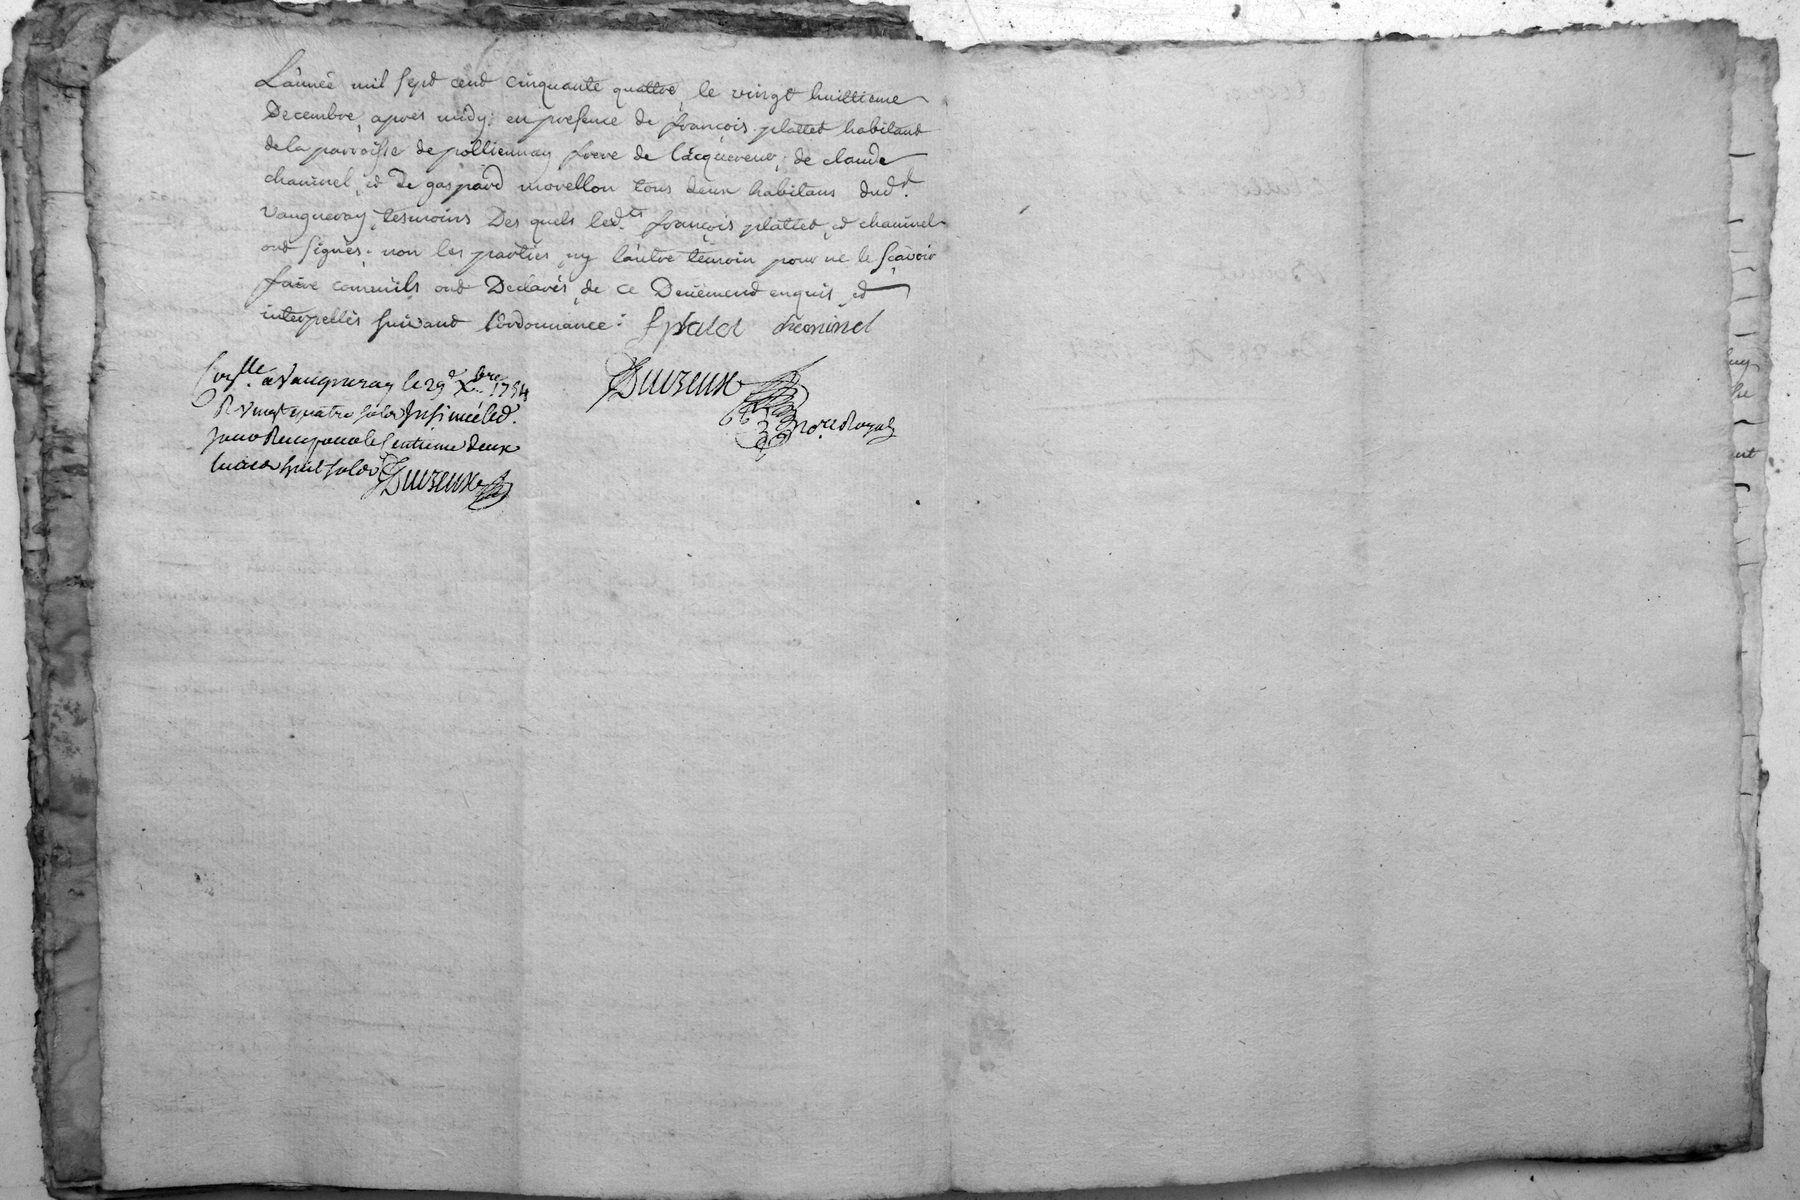 L'année mil sept cent cinquante quattre, le vingt huittieme
Decembre, apres midy; en presence de françois plattet habitant
de la parroisse de pollionnay frere de l'acquereur, de claude
chaninel, et De gaspard morellon tous deux habitans dud.t
Vaugneray, tesmoins Des quels led.ts françois plattet, et chaninel
ont signés. non les parties, ny l'autre témoin pour ne le sçavoir
faire comm'ils ont Declarés, de ce Deüement enquis, et
interpellés suivant l'ordonnance: f plalet chaninel
Con.lle a Vaugneray le 29.e X.bre 1754
R vingt quatre sols Insinué led.
jour Reçu pour le Centieme deux
livres huit sols
Duizeux
Duizeux
No.re Royal